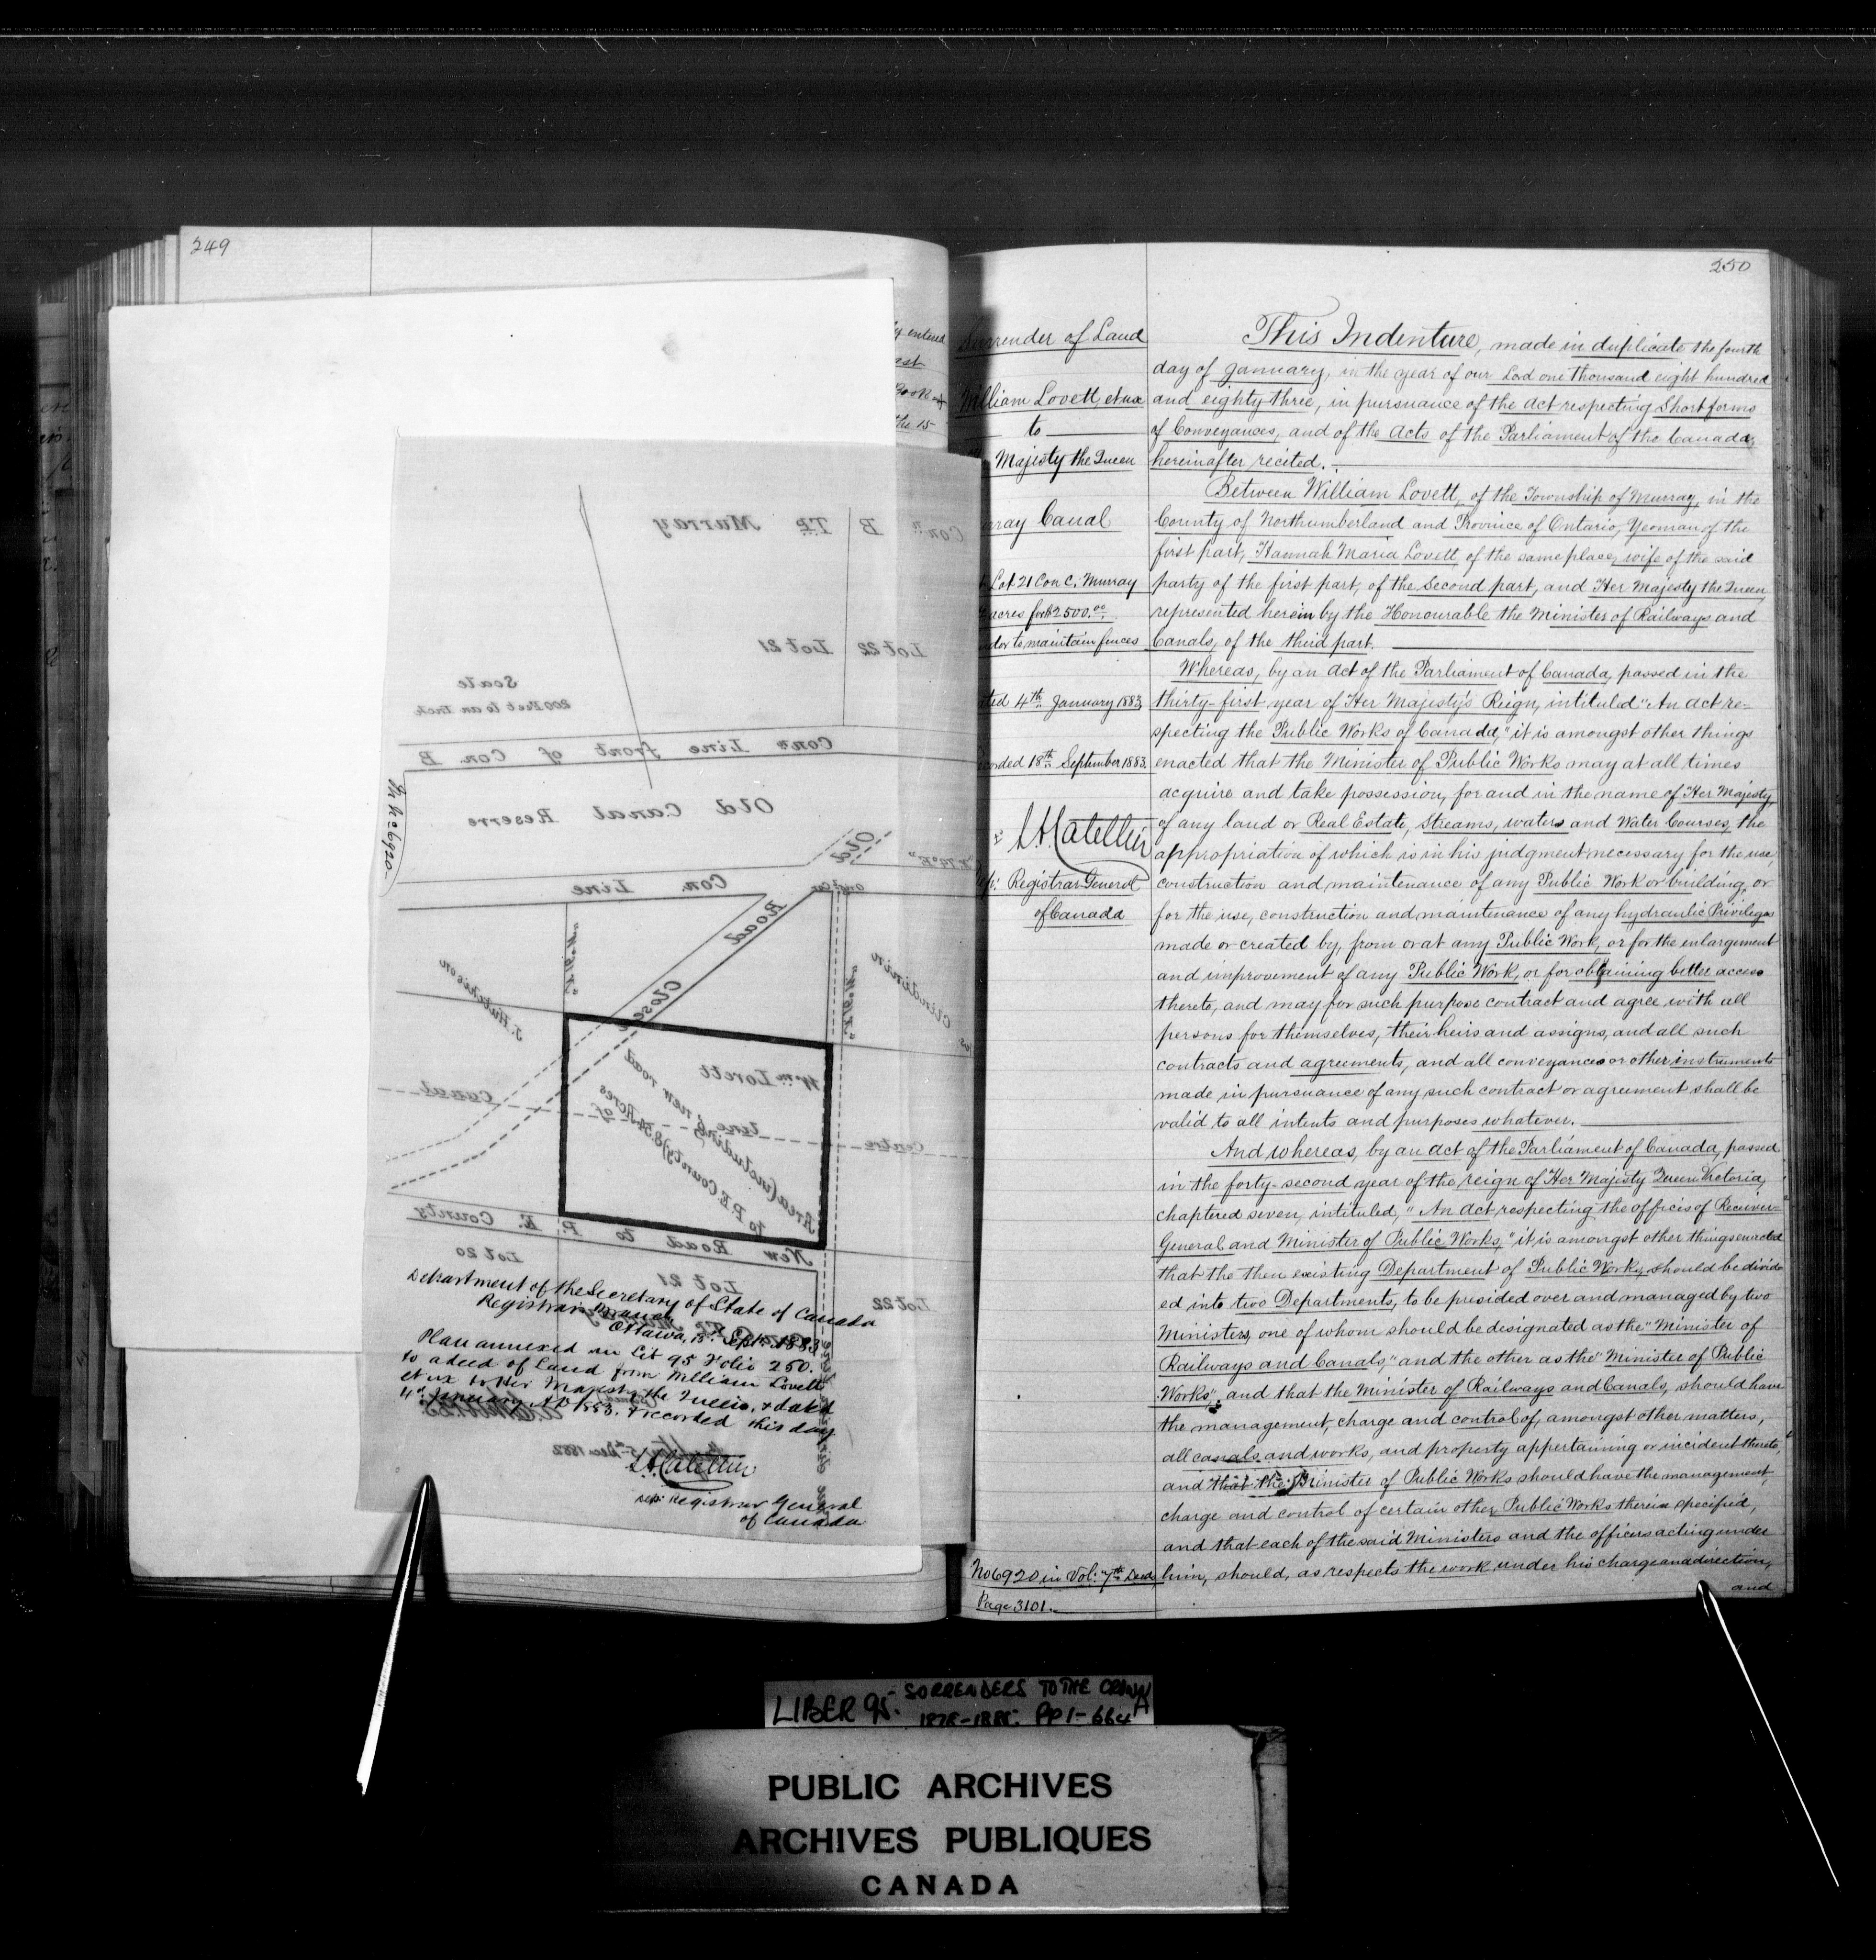 249
ly entered
ast
Book
the 15
Conⁿ B Tp Murray
Lot 22 Lot 21
Scale
200 Feet to an Inch
Conⁿ Line front of Con. B
Old Canal Reserve
Old
Con. Line
Road
Closed
J. Hutchison
Clindinin
Wm Lovett
Area (including new road
to P.E County) 8.54 Acres
Centre line of Canal
New Road to P. E. County
Lot 22 Lot 21 Lot 20
5th Dec 1882
Department of the Secretary of State of Canada
Registrar's Branch
Ottawa, 18 Sept. 1883
Plan annexed in Lib 95 Folio 250.
to a deed of Land from William Lovett
et ux to Her Majesty the Queen, & dated
4th January A.D 1883. & recorded this day
L.A. Catellier
Dep: Registrar General
of Canada
250
Surrender of Land
William Lovett, et ux
to
Majesty the Queen
rray Canal
Lot 21 Con C. Murray
acres for $2500.00
ndor to maintain fences
ted 4th January 1883
corded 18th September 1883.
L.A. Catellier
Registrar General
of Canada
No 6920 in Vol: 7th Deeds
Page 3101.
This Indenture, made in duplicate the fourth
day of January, in the year of our Lod one thousand eight hundred
and eighty-three, in pursuance of the Act respecting Short forms
of Conveyances, and of the Acts of the Parliament of the Canada,
hereinafter recited.
Between William Lovett, of the Township of Murray, in the
County of Northumberland and Province of Ontario, Yeoman of the
first part, Hannah Maria Lovett, of the same place, wife of the said
party of the first part, of the Second part, and Her Majesty the Queen,
represented herein by the Honourable the Minister of Railways and
Canals, of the third part.
Whereas, by an Act of the Parliament of Canada, passed in the
thirty-first year of Her Majesty's Reign, intituled "An Act re-
specting the Public Works of Canada," it is amongst other things
enacted that the Minister of Public Works may at all times
acquire and take possession, for and in the name of Her Majesty,
of any land or Real Estate, Streams, waters and Water Courses, the
appropriation of which is in his judgment necessary for the use,
construction and maintenance of any Public Work or building, or
for the use, construction and maintenance of any hydraulic Privileges
made or created by, from or at any Public Work, or for the enlargement
and improvement of any Public Work, or for obtaining better access
thereto, and may for such purpose contract and agree with all
persons for themselves, their heirs and assigns, and all such
contracts and agreements, and all conveyances or other instruments
made in pursuance of any such contract or agreement shall be
valid to all intents and purposes whatever.
And whereas, by an Act of the Parliament of Canada, passed
in the forty-second year of the reign of Her Majesty Queen Victoria,
chaptered seven, intituled, "An Act respecting the offices of Receiver-
General and Minister of Public Works," it is amongst other things enacted
that the then existing Department of Public Works, should be divid
ed into two Departments, to be presided over and managed by two
Ministers, one of whom should be designated as the "Minister of
Railways and Canals," and the other as the "Minister of Public
Works", and that the Minister of Railways and Canals, should have
the management, charge and control of, amongst other matters,
all canals and works, and property appertaining or incident thereto,
and that the Minister of Public Works should have the management,
charge and control of certain other Public Works therein specified,
and that each of the said Ministers and the officers acting under
him, should, as respects the work under his charge and direction,
and
LIBER 95: SORRENDERS TO THE CROWN
1878-1885. PP 1-664 A
PUBLIC ARCHIVES
ARCHIVES PUBLIQUES
CANADA